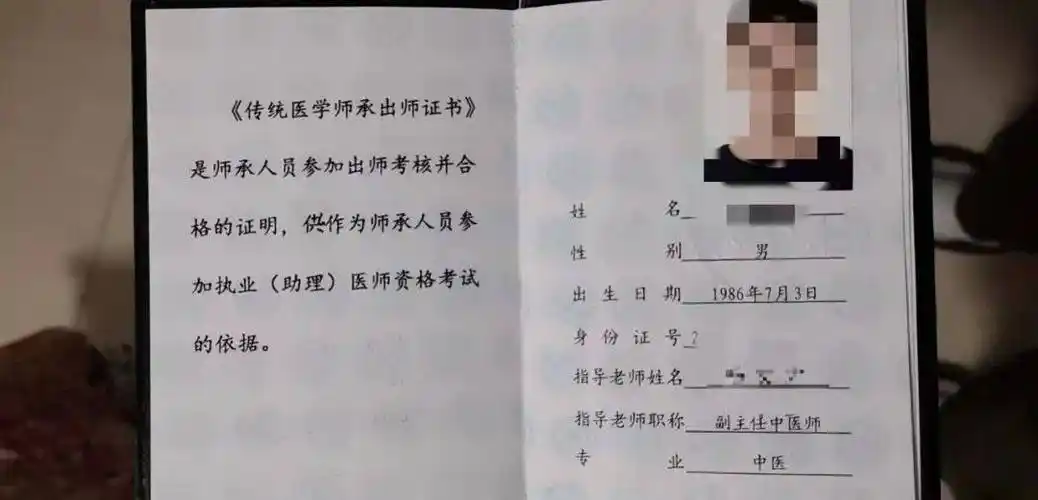 《传统医学师承出师证书》
是师承人员参加出师考核并合
格的证明，供作为师承人员参
加执业（助理）医师资格考试
的依据。
姓名
性别 男
出生日期 1986年7月3日
身份证号 2
指导老师姓名
指导老师职称 副主任中医师
专业 中医